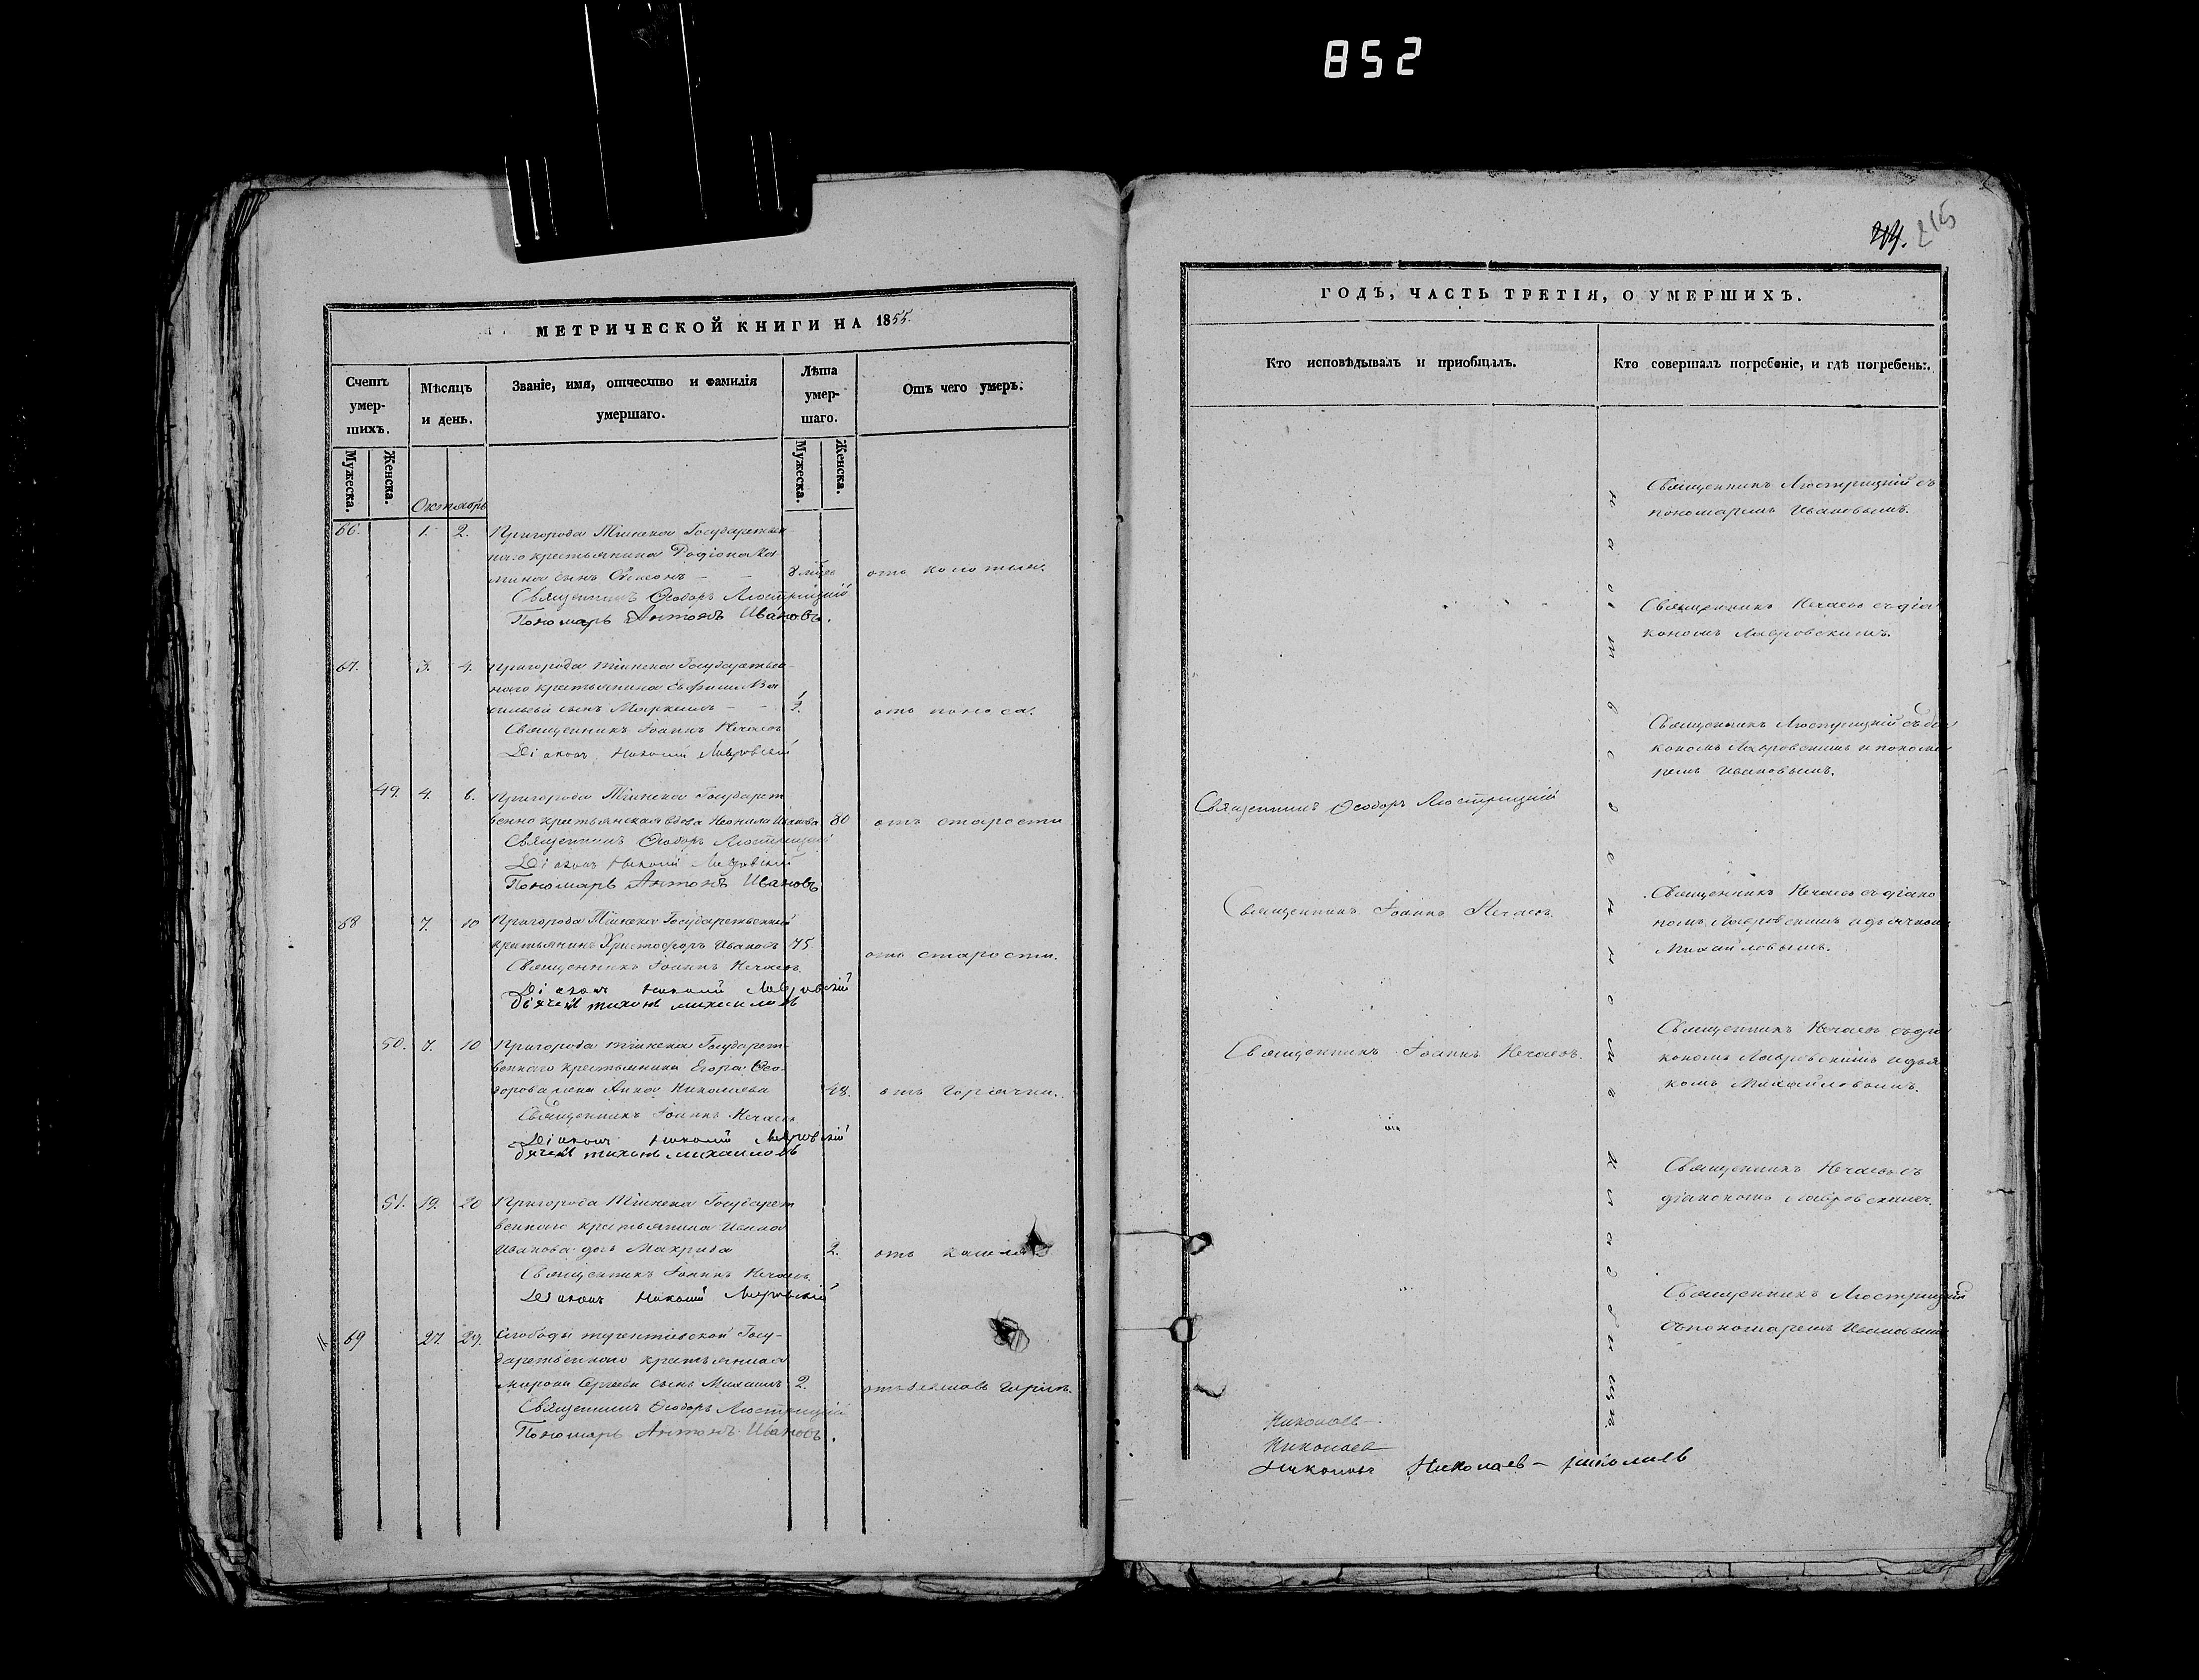 852
МЕТРИЧЕСКОЙ КНИГИ НА 1855.
Счетъ умер-шихъ.
Мѣсяцъ и день.
Званіе, имя, отчество и фамилія умершаго.
Лѣта умер-шаго.
Отъ чего умеръ:
Мужеска.
Женска.
Мужеска.
Женска.
Октябрь
66. 1. 2. Пригорода Тіинска Государствен
наго крестьянина Родіона
сынъ Симеонъ — —
Священникъ Ѳеодоръ Люстрицкій
Пономарь Антонъ Ивановъ.
67. 3. 4. Пригорода Тіинска Государствен-
наго крестьянина Ва
сильева сынъ — — отъ поноса.
Священникъ Іоаннъ Нечаевъ
Діаконъ Николай Лавровскій
49. 4. 6. Пригорода Тіинска Государст
венно крестьянская вдова Неонила Иванова 80 отъ старости
Священникъ Ѳеодоръ Люстрицкій
Діаконъ Николай Лавровскій
Пономарь Антонъ Ивановъ
68 7. 10 Пригорода Тіинска Государственный
крестьянинъ Христофоръ Ивановъ 75. отъ старости.
Священникъ Іоаннъ Нечаевъ
Діаконъ Николай Лавровскій
Дьячекъ Тихонъ Михаиловъ
50. 7. 10 Пригорода Тіинска Государст-
веннаго крестьянина Егора Ѳео-
дорова жена Анна Николаева 48. отъ горячки.
Священникъ Іоаннъ Нечаевъ
Діаконъ Николай Лавровскій
Дьячекъ Тихонъ Михаиловъ
51. 19. 20 Пригорода Тіинска Государст
веннаго крестьянина Ивана
Иванова дочь Макрида 2. отъ кашля
Священникъ Іоаннъ Нечаевъ
Діаконъ Николай Лавровскій
69 27. 29. Слободы Терентіевской Госу-
дарственнаго крестьянина
Мирона Сергеева сынъ Михаилъ 2.
Священникъ Ѳеодоръ Люстрицкій
Пономарь Антонъ Ивановъ.
214. 215
ГОДЪ, ЧАСТЬ ТРЕТІЯ, О УМЕРШИХЪ.
Кто исповѣдывалъ и пріобщалъ.
Кто совершалъ погребеніе, и гдѣ погребены:.
Священникъ Люстрицкій съ
пономаремъ Ивановымъ.
Священникъ Нечаевъ съ діа
кономъ Лавровскимъ.
Священникъ Люстрицкій съ діа
кономъ Лавровскимъ и понома
ремъ Ивановымъ.
Священникъ Ѳеодоръ Люстрицкій
Священникъ Іоаннъ Нечаевъ.
Священникъ Нечаевъ съ діако
номъ Лавровскимъ и дьячкомъ
Михайловымъ.
Священникъ Іоаннъ Нечаевъ.
Священникъ Нечаевъ съ діа
кономъ Лавровскимъ и дьяч
комъ Михайловымъ.
Священникъ Нечаевъ съ
діакономъ Лавровскимъ.
Священникъ Люстрицкій
съ пономаремъ Ивановымъ
на отведенномъ кладбищѣ
Николаев
Николаев — Николаев